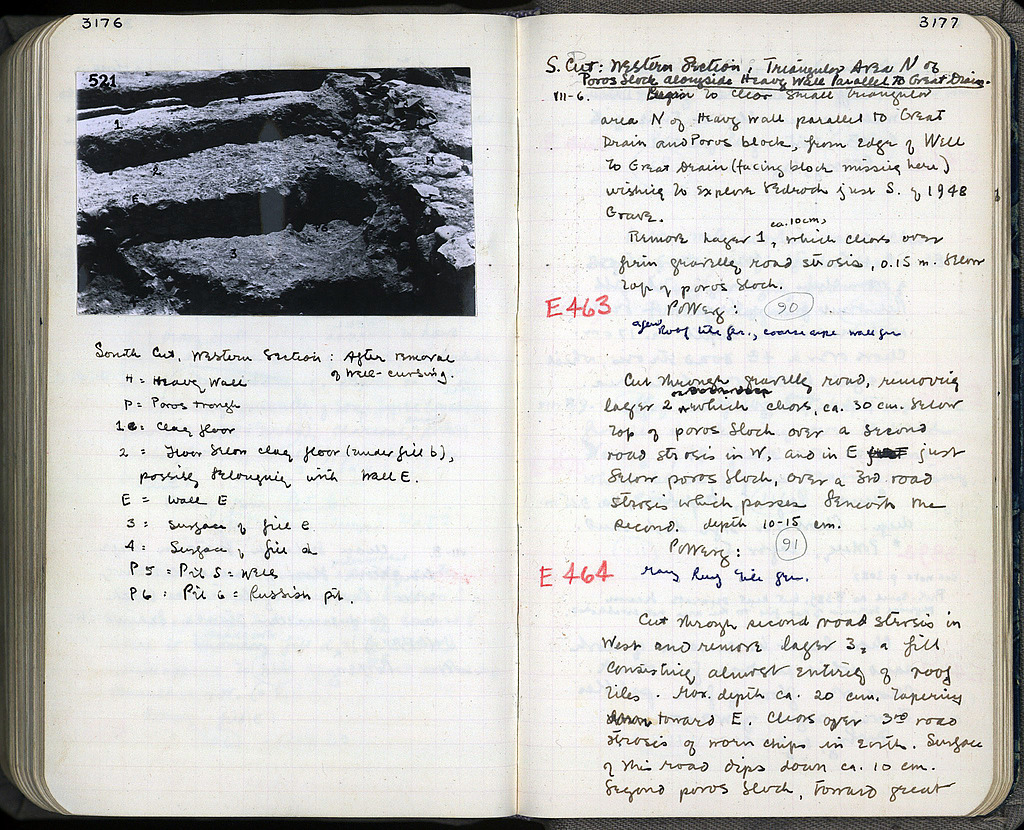 3176
521
1
2
E
3
H
South Cut, Western Section: After removal
of well-cursing.
H = Heavy Wall
P = Poros trough
1 = Clay floor
2 = Floor below clay floor (under fill b),
possibly belonging with Wall E.
E = Wall E
3 = Surface of fill c
4 = Surface of fill d
P5 = Pit 5 = Well
P6 = Pit 6 = Russian pit.
3177
S. Cut: Western Section, Triangular Area N of
Poros block alongside Heavy Wall Parallel to Great Drain.
VII-6. Begin to clear small triangular
area N of Heavy Wall parallel to Great
Drain and Poros block, from edge of Well
to Great Drain (facing block missing here)
wishing to explore bedrock just S. of 1948
Grave.
ca. 10cm,
Remove layer 1, which clears over
firm gravelly road strosis, 0.15 m. below
top of poros block.
E 463 Pottery: 90
a few Roof tile frr., coarse wall frr
Cut through gravelly road, removing
layer 2 which clears, ca. 30 cm. below
top of poros block over a second
road strosis in W, and in E just
below poros block, over a 3rd road
strosis which passes beneath the
second. depth 10-15 cm.
Pottery: 91
E 464 Many tile frr.
Cut through second road strosis in
West and remove layer 3, a fill
consisting almost entirely of roof
tiles. Max. depth ca. 20 cm. tapering
down toward E. Clears over 3rd road
strosis of worn chips in earth. Surface
of this road dips down ca. 10 cm.
beyond poros block, toward great